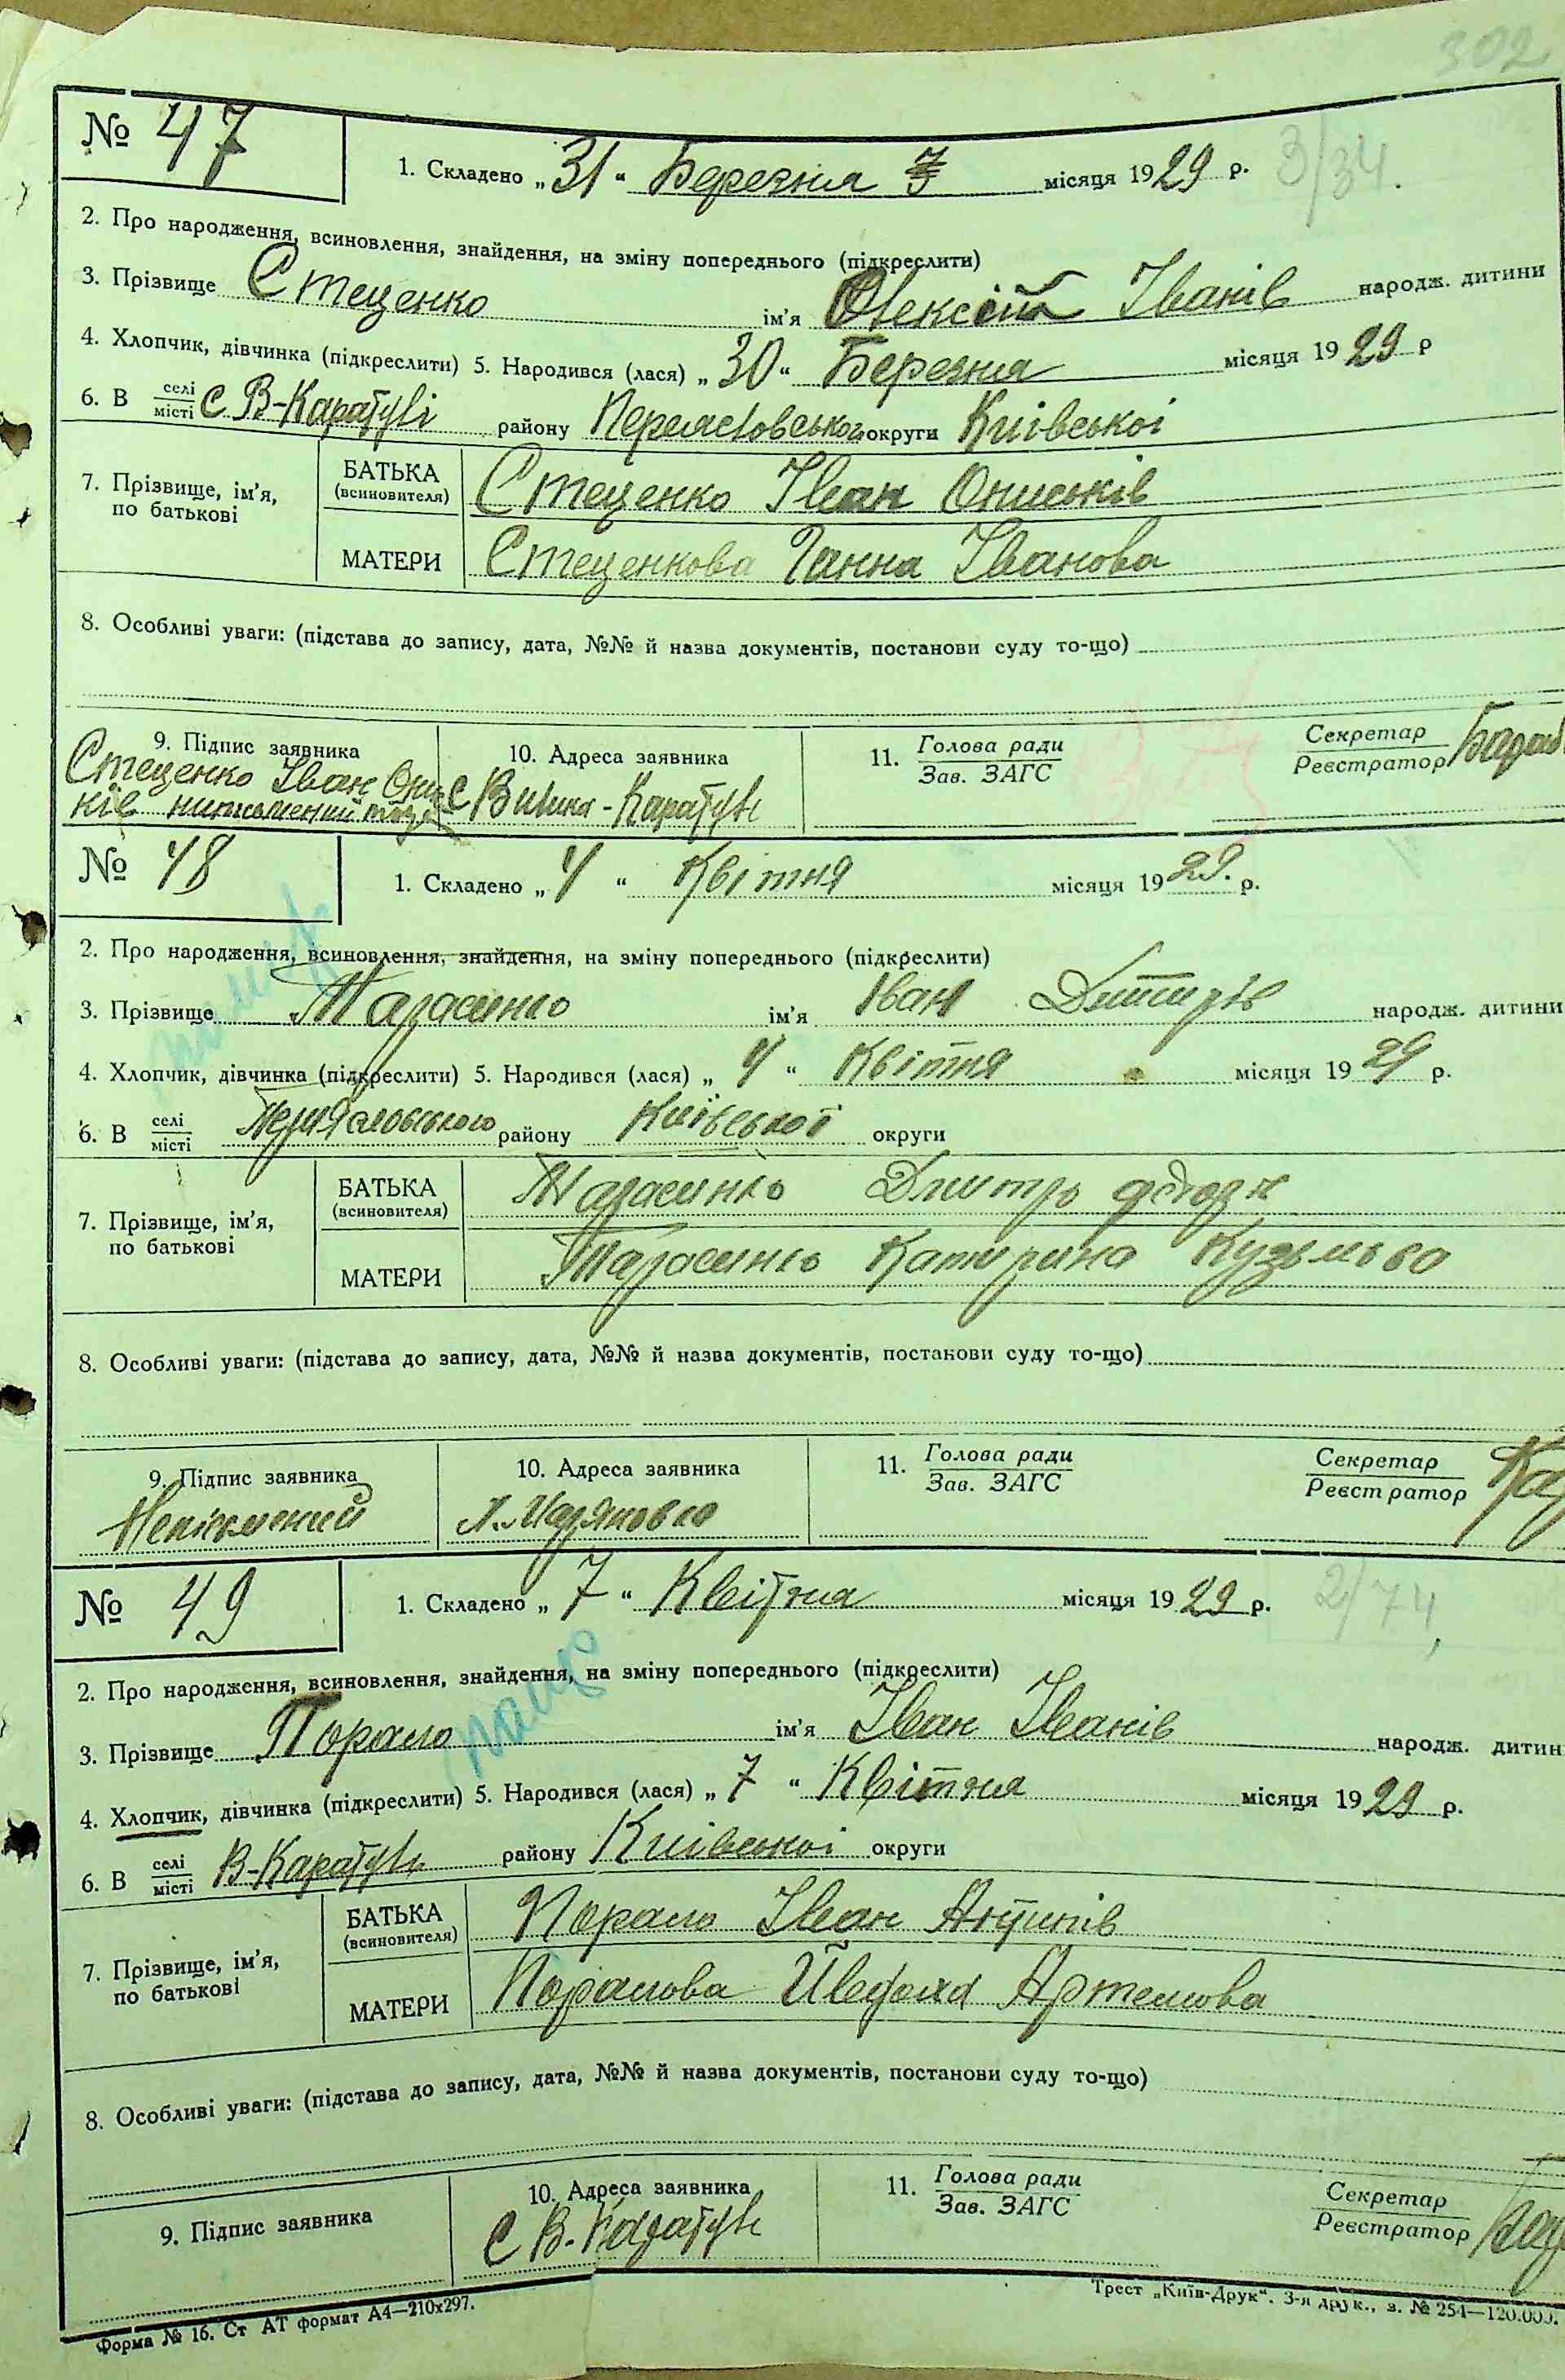 302
№ 47
1. Складено „31" Березня місяця 1929 р. 3/34.
2. Про народження, всиновлення, знайдення, на зміну попереднього (підкреслити)
3. Прізвище Стеценко ім'я Олексій Іванів народж. дитини
4. Хлопчик, дівчинка (підкреслити) 5. Народився (лася) „30" Березня місяця 1929 р
6. В селі місті с В-Каратулі району Переяславського округи Київської
7. Прізвище, ім'я, по батькові
БАТЬКА (всиновителя) Стеценко Іван Ониськів
МАТЕРИ Стеценкова Ганна Іванова
8. Особливі уваги: (підстава до запису, дата, №№ й назва документів, постанови суду то-що)
9. Підпис заявника 10. Адреса заявника 11. Голова ради Зав. ЗАГС Секретар Реєстратор
Стеценко Іван Они-
ків
с Каратуль
№ 48
1. Складено „4" Квітня місяця 1929. р.
2. Про народження, всиновлення, знайдення, на зміну попереднього (підкреслити)
3. Прізвище Тарасенко ім'я Іван Дмитрів народж. дитини
4. Хлопчик, дівчинка (підкреслити) 5. Народився (лася) „4" Квітня місяця 1929 р.
6. В селі місті Переяславського району Київської округи
7. Прізвище, ім'я, по батькові
БАТЬКА (всиновителя) Тарасенко Дмитро
МАТЕРИ Тарасенко Катирина Кузьмова
8. Особливі уваги: (підстава до запису, дата, №№ й назва документів, постанови суду то-що)
9. Підпис заявника 10. Адреса заявника 11. Голова ради Зав. ЗАГС Секретар Реєстратор
Неписьмений
№ 49
1. Складено „7" Квітня місяця 1929 р. 2/74,
2. Про народження, всиновлення, знайдення, на зміну попереднього (підкреслити)
3. Прізвище Порало ім'я Іван Іванів народж. дитин
4. Хлопчик, дівчинка (підкреслити) 5. Народився (лася) „7" Квітня місяця 1929 р.
6. В селі місті В-Каратуль району Київської округи
7. Прізвище, ім'я, по батькові
БАТЬКА (всиновителя) Порало Іван
МАТЕРИ Поралова Артемова
8. Особливі уваги: (підстава до запису, дата, №№ й назва документів, постанови суду то-що)
9. Підпис заявника 10. Адреса заявника 11. Голова ради Зав. ЗАГС Секретар Реєстратор
С В. Каратуль
Форма № 16. Ст АТ формат А4—210х297.
Трест „Київ-Друк". 3-я друк., з. № 254—120.000.